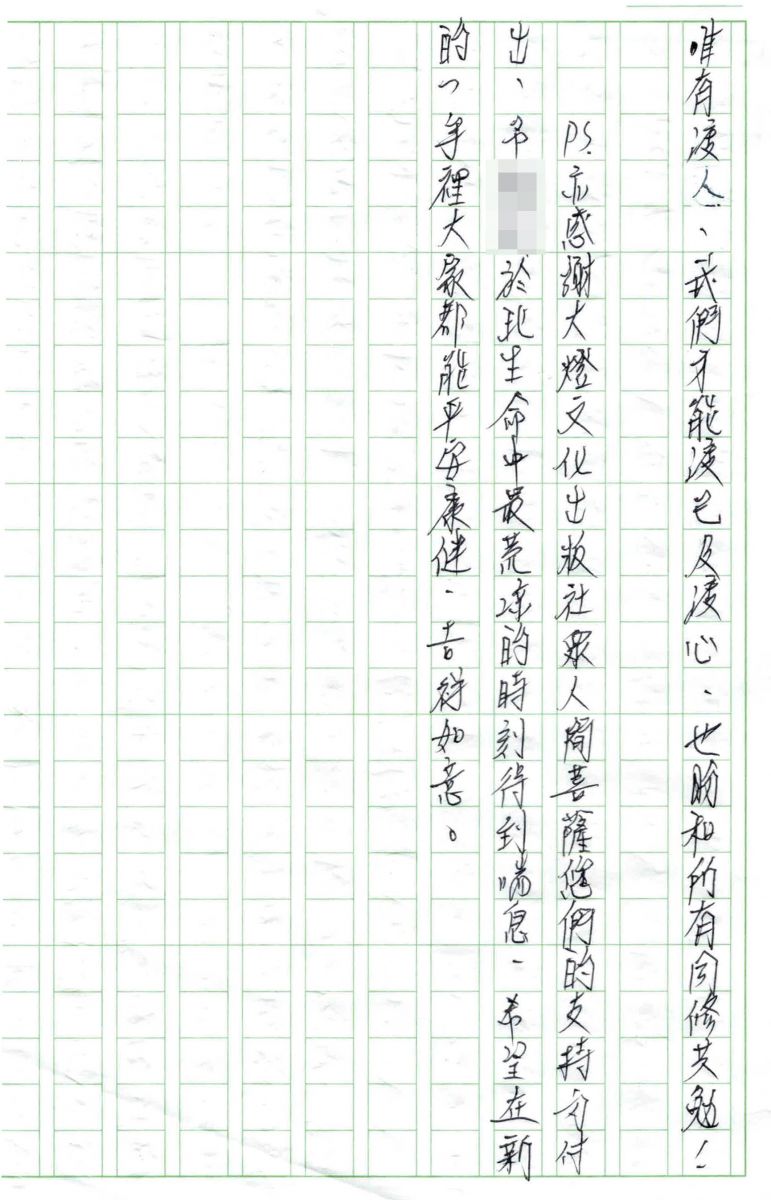 唯有渡人、我們才能渡己及渡心、也盼和所有同修共勉！
PS.亦感謝大燈文化出版社眾人間菩薩您們的支持与付
出、於此生命中最荒涼的時刻得到喘息、希望在新
的一年裡大家都能平安康健、吉祥如意。